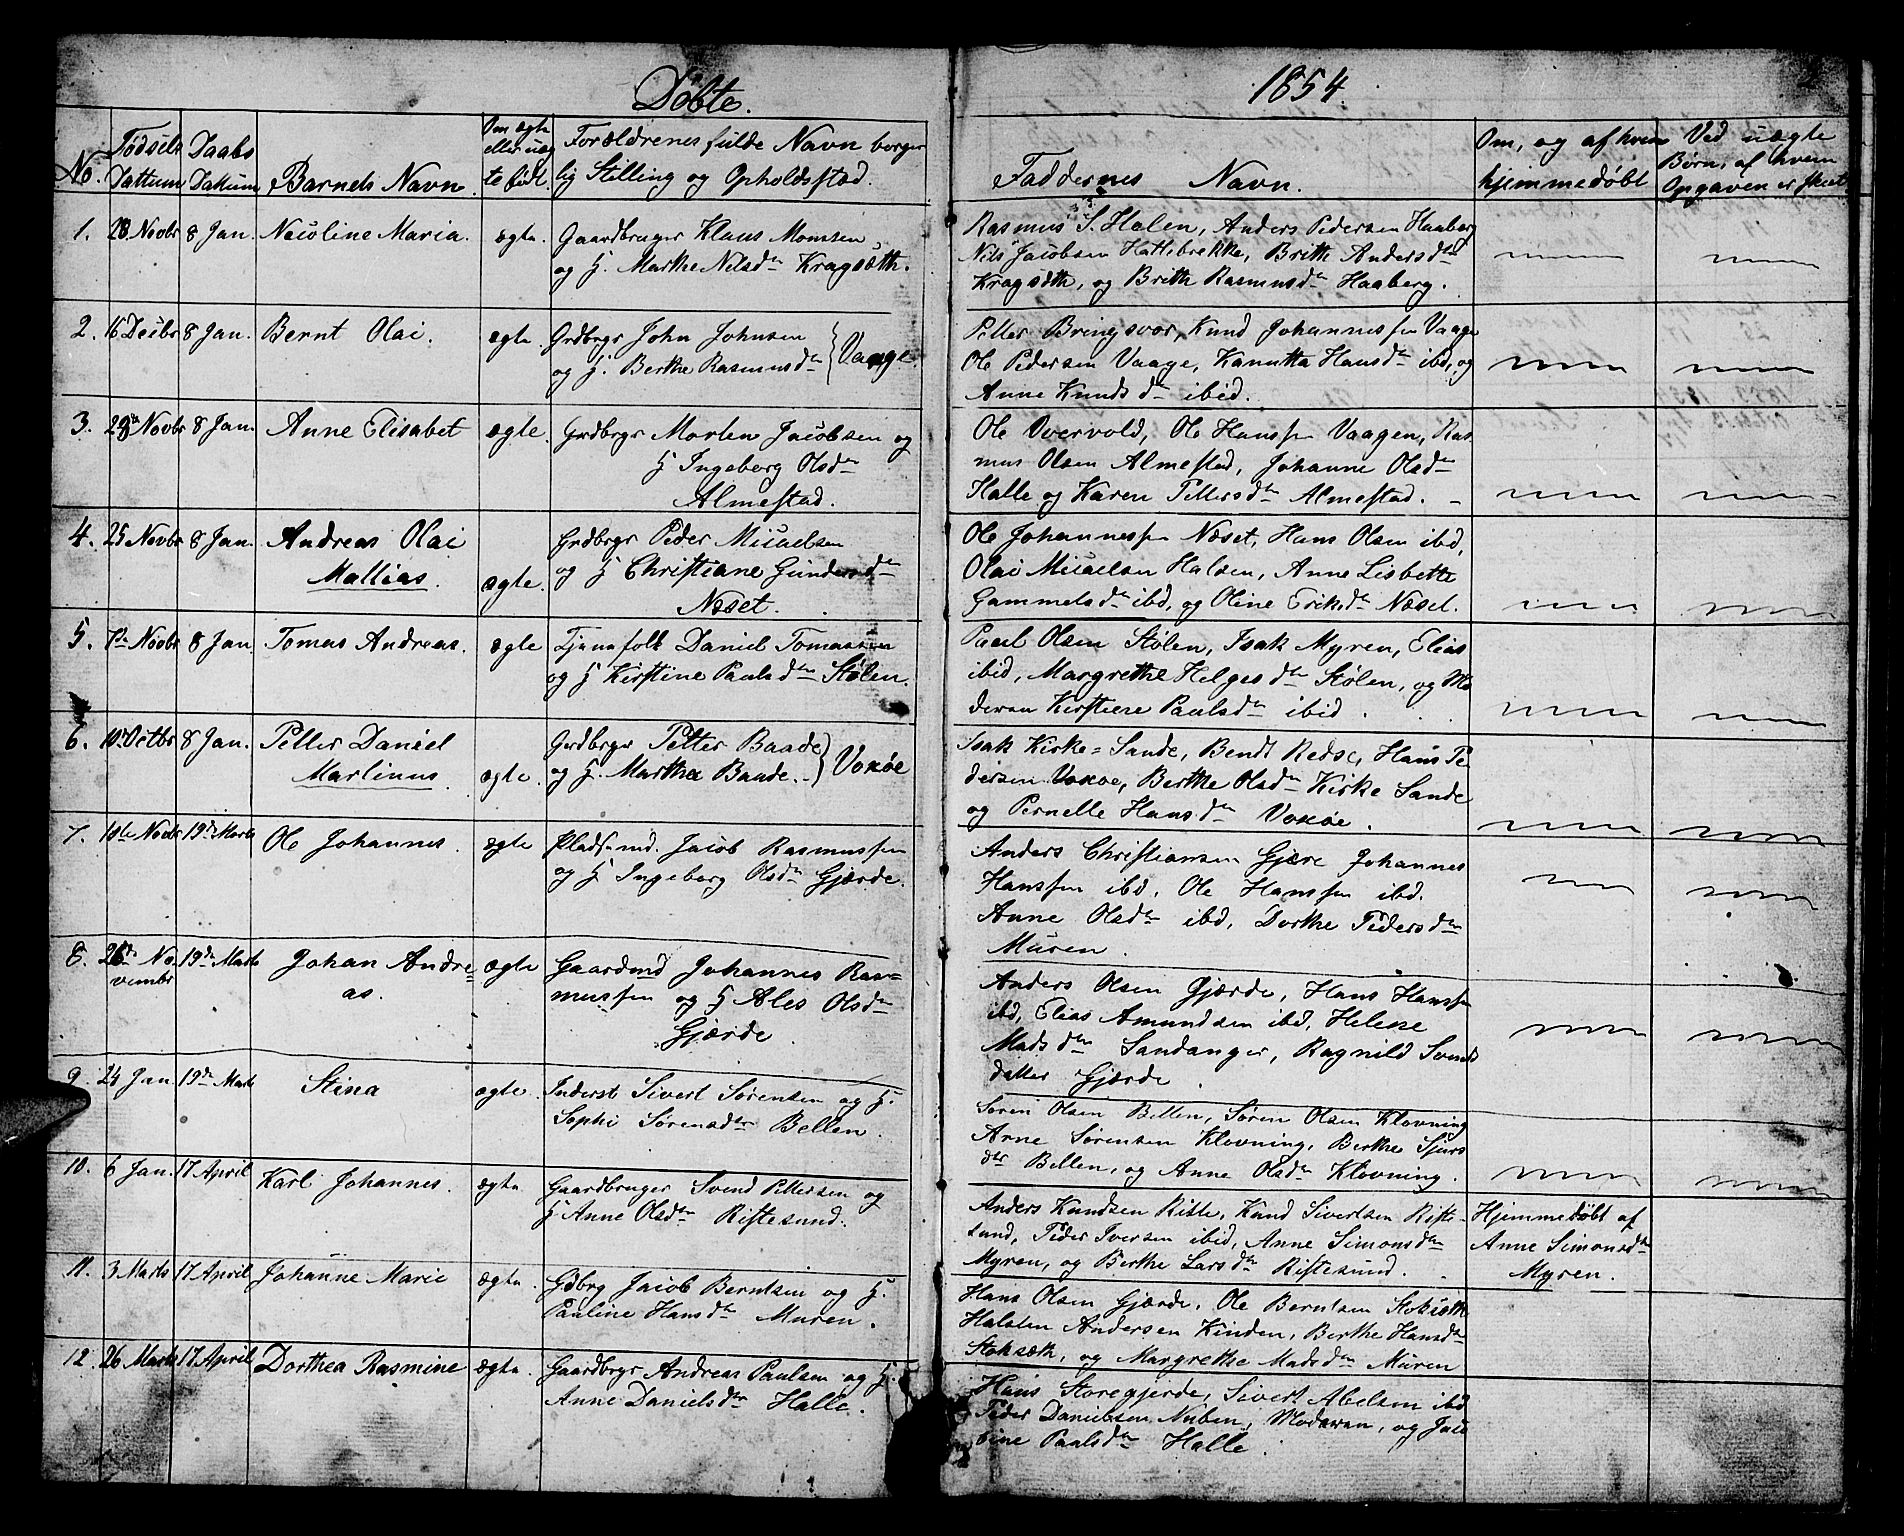 Döbte.
1854
No.
Födsels Dattum
Daabs Dattum
Barnets Navn.
Om ægte eller uæg te født.
Forældrenes fulde Navn borger
lig Stilling og Opholdsstæd.
Faddernes Navn.
Om, og af hvem
hjemmedöbt
Ved uægte
Børn, af hvem
Opgaven er skeet
1. 28 Novbr 8 Jan. Nicoline Maria. ægte. Gaardbruger Klaus Monssen
og H. Marthe Nilsdtr Kragsæth.
Rasmus S. Holen, Anders Pedersen Haaberg
Nils Jacobsen Hattebrekke, Brithe Andersdtr
Kragsæth, og Brith Rasmusdtr Haaberg.
2. 16 Decbr 8 Jan. Bernt Olai. ægte. Grdbrgr John Johnsen
og H. Berthe Rasmusdtr } Vaage.
Petter Bringsvor, Knud Johannessen Vaage
Ole Pedersen Vaage, Kanutta Hansdtr ibd, og
Anne Knudsdtr ibid.
3. 29 Novbr 8 Jan. Anne Elisabet ægte. Grdbrgr Morten Jacobsen og
H Ingeborg Olsdtr
Almestad.
Ole Overvold, Ole Hanssen Vaagen, Ras
mus Olsen Almestad, Johanne Olsdtr
Halle og Karen Pettersdtr Almestad.
4. 25 Novbr 8 Jan. Andreas Olai
Mattias. ægte. Grdbrgr Peder Micaelsen
og H Christiane Gundersdtr
Næset.
Ole Johannessen Næset, Hans Olsen ibd,
Olai Micaelsen Halsen, Anne Lisbette
Gammelsdtr ibd, og Oline Eriksdtr Næset.
5. 7de Novbr 8 Jan. Tomas Andreas. ægte Tjenefolk Daniel Tomassen
og H Kirstine Paulsdtr Stølen.
Paul Olsen Stølen, Isak Myren, Elias
ibid, Margrethe Helgesdtr Stølen, og Mo
deren Kirstine Paulsdtr ibid.
6. 10de Octbr 8 Jan. Petter Daniel
Martinus ægte. Grdbrgr Petter Baade
og H. Marthea Baade. } Voxöe
Isak Kirke=Sande, Bendt Redse, Hans Pe
dersen Voxöe, Berthe Olsdtr Kirke Sande
og Pernelle Hansdtr Voxöe.
7. 10de Novbr 19de Marts Ole Johannes. ægte Pladsmd. Jacob Rasmussen
og H Ingeborg Olsdtr Gjærde.
Anders Christiansen Gjære Johannes
Hanssen ibd. Ole Hanssen ibd.
Anne Olsdtr ibd, Dorthe Pedersdtr
Muren.
8. 26de No
vember 19de Marts Johan Andre=
as. ægte Gaardmd Johannes Ras=
mussen og H Ales Olsdtr
Gjærde
Anders Olsen Gjærde, Hans Hanssen
ibd, Elias Amundsen ibd, Helene
Madsdtr Sandanger, Ragnild Svends
datter Gjærde.
9. 24 Jan. 19de Marts Stina ægte. Inderst Sivert Sörensen og H.
Sophi Sörensdtr Bellen.
Sören Olsen Bellen, Sören Olsen Klovning
Arne Sörensen Klovning, Berthe Sjurs
dtr Bellen, og Anne Olsdtr Klovning.
10. 6 Jan. 17 April Karl Johannes. ægte Gaardbruger Svend Pettersen og
H Anne Olsdtr Ristesund.
Anders Knudsen Riste, Knud Sivertsen Riste=
sund, Peder Iversen ibid, Anne Simonsdtr
Myren, og Berthe Larsdtr Ristesund.
Hjemmedöbt af
Anne Simonsdtr
Myren.
11. 3 Marts 17 April Johanne Marie ægte. Gdbrg Jacob Berntsen og H.
Pauline Hansdtr Muren.
Hans Olsen Gjærde, Ole Berntsen Stoksæth
Halsten Andersen Kinden, Berthe Hansdtr
Stoksæth, og Margrethe Madsdtr Muren
12. 26 Marts 17 April Dorthea Rasmine ægte. Gaardbrgr Andreas Paulsen og H.
Anne Danielsdtr Halle.
Hans Storegjerde, Sivert Abelsen ibd
Peder Danielsen Nuben, Moderen, og Jaco
bine Paalsdtr Halle.